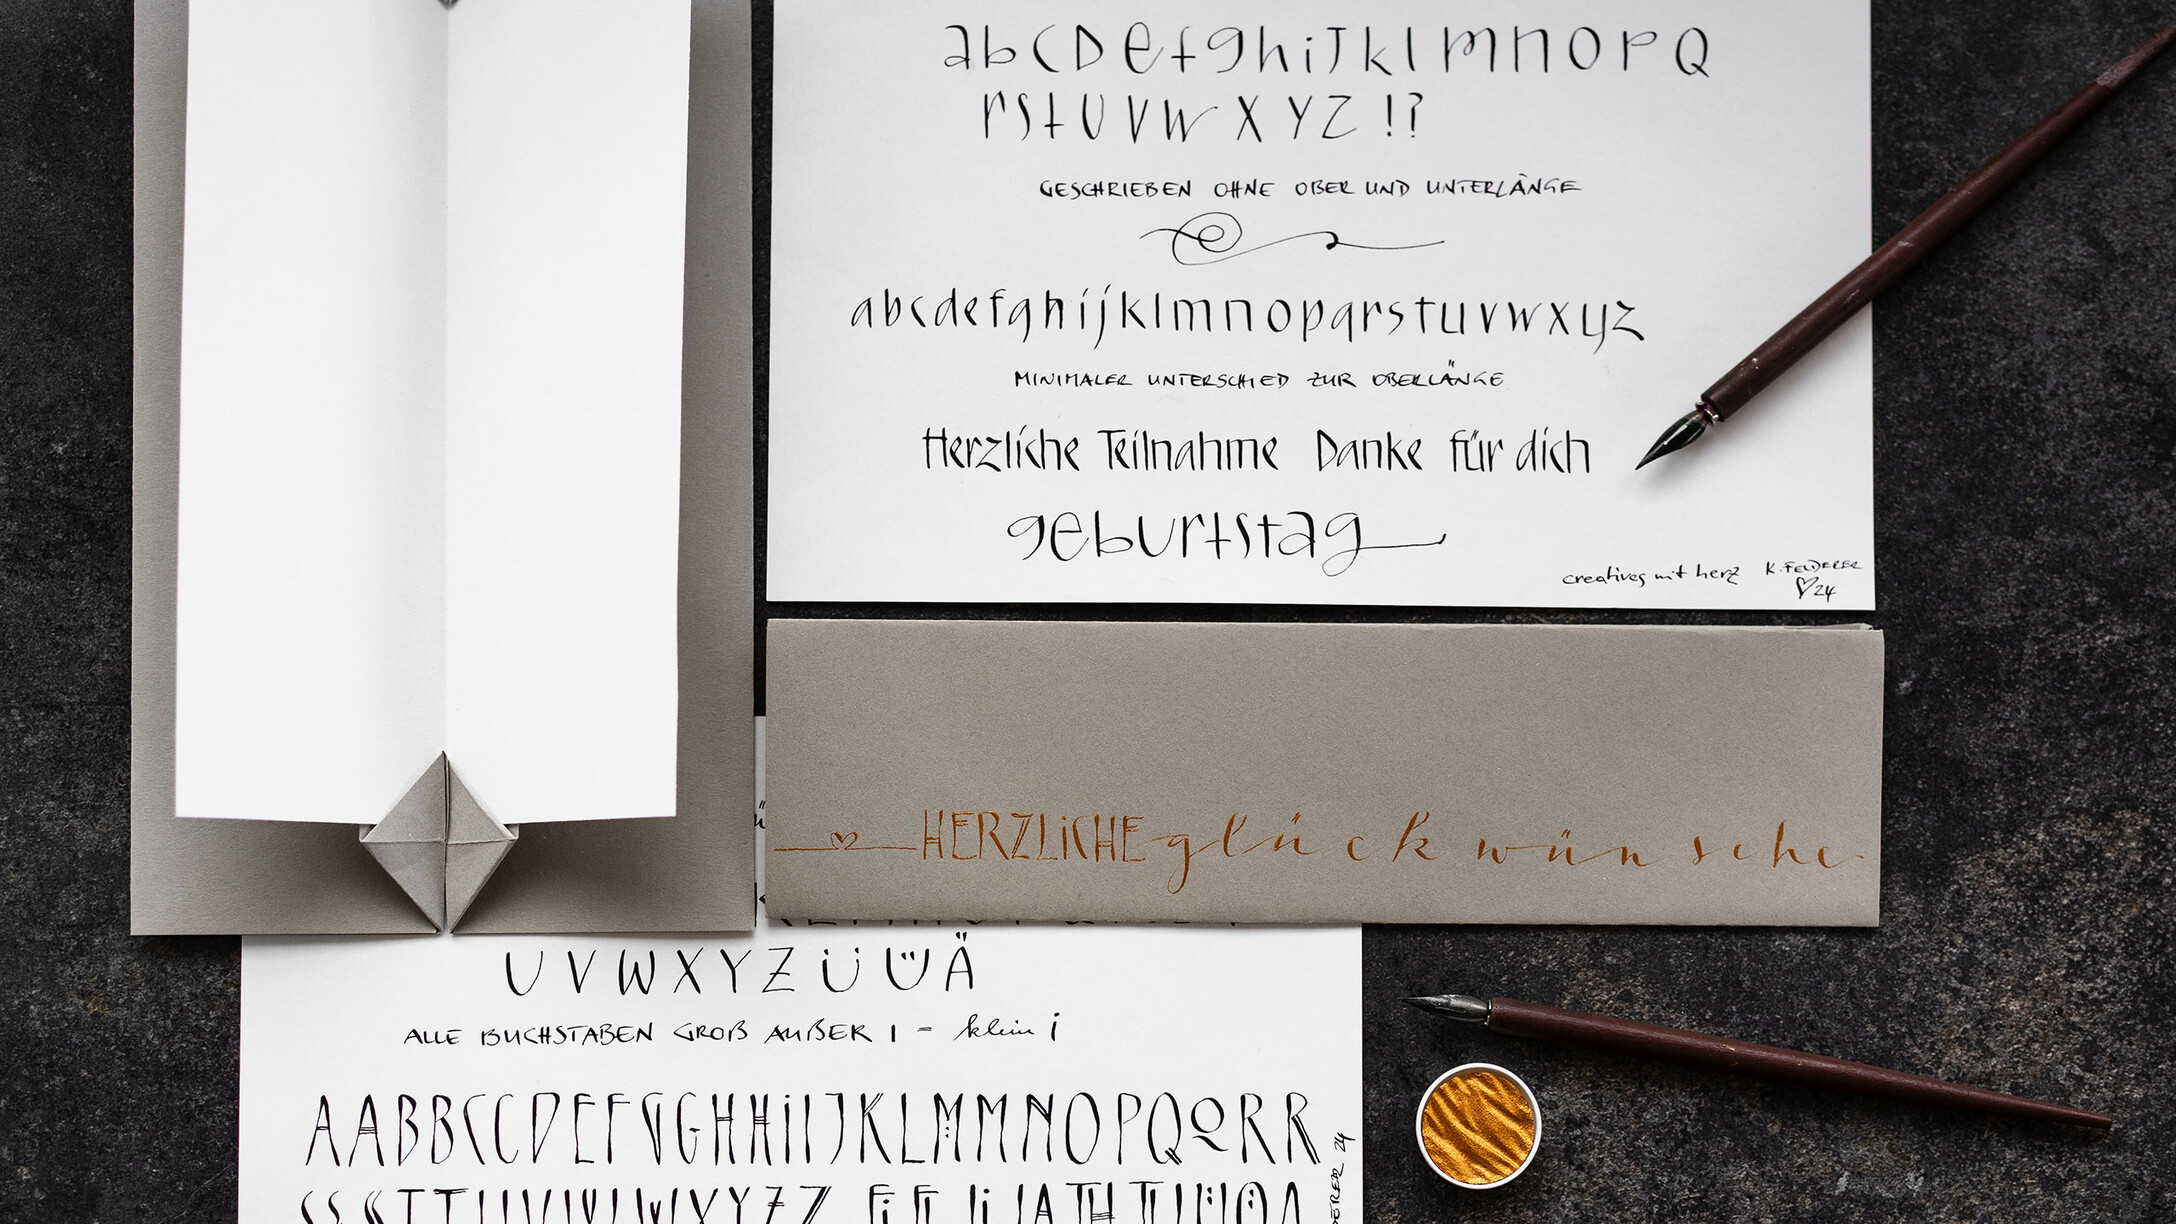 abcDefghiJklmnopQ
rstUVwXYZ!?
GESCHRIEBEN OHNE OBER UND UNTERLÄNGE
abcdefghijklmnopqrstuvwxyz
MINIMALER UNTERSCHIED ZUR OBERLÄNGE
Herzliche Teilnahme Danke für dich
geburtstag
creatives mit herz K. FELDERER
24
HERZLiCHE glückwünsche
UVWXYZÜÜÄ
ALLE BUCHSTABEN GROß AUßER I - klein i
AABBCCDEFGGHHiIJKLMMNOPQQRR